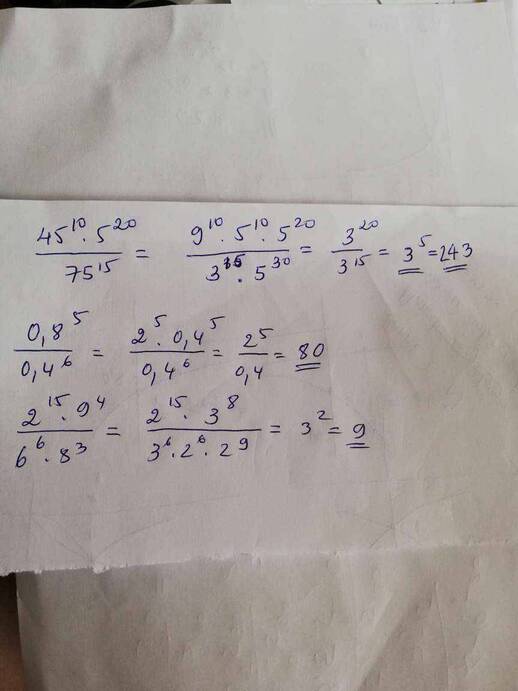 45¹⁰·5²⁰/75¹⁵ = 9¹⁰·5¹⁰·5²⁰/3¹⁵·5³⁰ = 3²⁰/3¹⁵ = 3⁵=243
0,8⁵/0,4⁶ = 2⁵·0,4⁵/0,4⁶ = 2⁵/0,4 = 80
2¹⁵·9⁴/6⁶·8³ = 2¹⁵·3⁸/3⁶·2⁶·2⁹ = 3² = 9